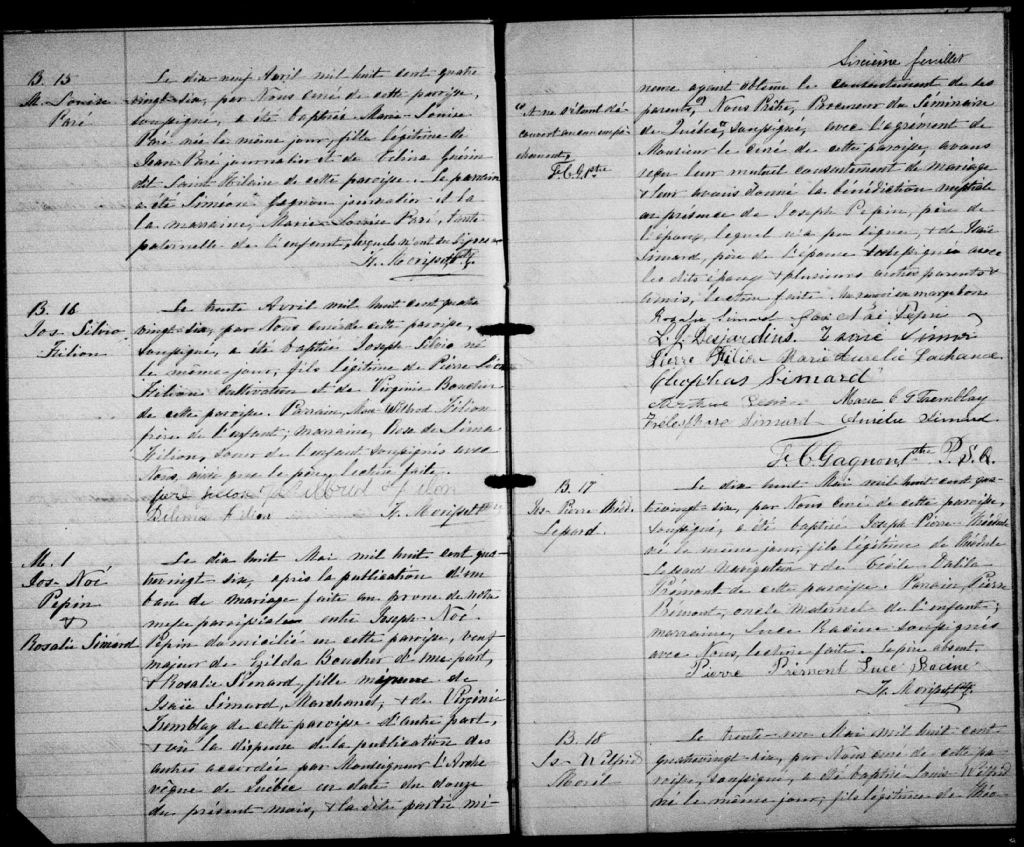 B. 15
M. Louise
Paré
Le dix neuf Avril mil huit cent quatre
vingt-six, par Nous curé de cette paroisse,
soussigné, a été baptisée Marie Louise
Paré née le même jour, fille légitime de
Jean Paré journalier et de Celina Guérin
dit Saint-Hilaire de cette paroisse. Le parrain
a été Siméon Gagnon journalier et la
la marraine, Marie Louise Paré, tante
paternelle de l'enfant, lesquels n'ont su signer
B. 16
Jos. Silvio
Filion
Le trente Avril mil huit cent quatre
vingt-six, par Nous curé de cette paroisse,
soussigné, a été baptisé Joseph Silvio né
le même jour, fils légitime de Pierre
Filion cultivateur et de Virginie Boucher
de cette paroisse. Parrain, Wilbrod Filion
frère de l'enfant; marraine, Rose de Lima
Filion, soeur de l'enfant soussignés avec
Nous, ainsi que le père, lecture faite.
Wilbrod Filon
Filion
M. 1
Jos- Noé
Pepin
&
Rosalie Simard
Le dix huit Mai mil huit cent qua-
trevingt six, après la publication d'un
ban de mariage faite au prone de notre
messe paroissiale entre Joseph Noé
Pepin domicilié en cette paroisse, veuf
majeur de Ezilda Boucher d'une part,
& Rosalie Simard, fille mineure de
Isaïe Simard, Marchand, & de Virginie
Tremblay de cette paroisse d'autre part,
& vû la dispense de la publication des
autres accordée par Monseigneur l'Arche
vêque de Québec en date du douze
du présent mois, & la dite partie mi-
Sixième feuillet
neure ayant obtenu le consentement de ses
parents, Nous Prêtre, Procureur du Séminaire
de Québec, soussigné, avec l'agrément de
Monsieur le curé de cette paroisse, avons
reçu leur mutuel consentement de mariage
& leur avons donné la bénédiction nuptiale
en présence de Joseph Pepin, père de
l'époux, lequel n'a pu signer, & de Isaïe
Simard, père de l'épouse soussignés avec
les dits époux & plusieurs autres parents &
amis, lecture faite. Un renvoi en marge bon
& ne s'étant dé
couvert aucun empê
chement,
F. C. G. Ptre
Rosalie Simard Jos Noé Pepin
L. J. Desjardins. Isaïe Simard
Pierre Filion Marie Aurelie Lachance
Cléophas Simard
Marie C G Tremblay
Télesphore Simard Aurélie Simard
F. C. Gagnon ptre P. S. Q.
B. 17
Jos- Pierre Méd.
Lessard.
Le dix huit Mai mil huit cent qua-
trevingt-six, par Nous curé de cette paroisse,
soussigné, a été baptisé Joseph Pierre Médéric
né le même jour, fils légitime de
Lessard Navigateur & de Cécile Dalila
Prémont de cette paroisse. Parrain, Pierre
Prémont, oncle maternel de l'enfant;
marraine, Luce Racine soussignés
avec Nous, lecture faite. Le père absent.
Pierre Prémont Luce Racine
B. 18
Ls- Wilfrid
Morel
Le trente-un Mai mil huit cent
quatrevingt-six, par Nous curé de cette pa-
roisse, soussigné, a été baptisé Louis Wilfrid
né le même jour, fils légitime de Théo